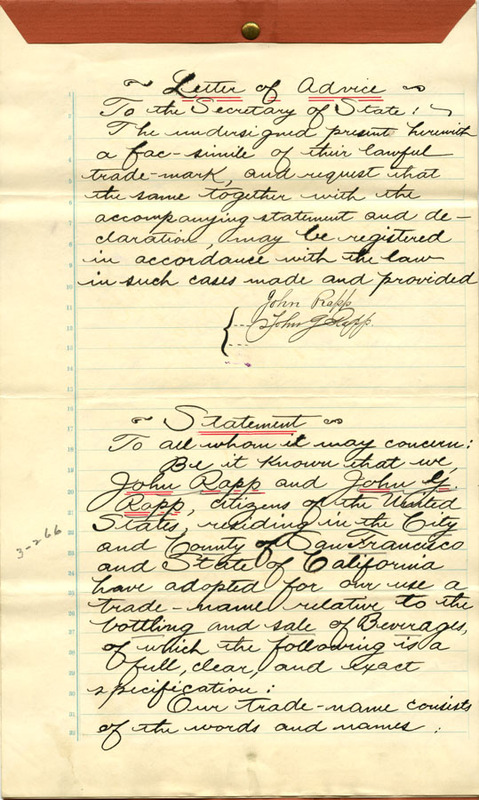 ~ Letter of Advice ~
To the Secretary of State:
The undersigned present herewith
a fac-simile of their lawful
trade-mark, and request that
the same together with the
accompanying statement and de-
claration, may be registered
in accordance with the law
in such cases made and provided
John Rapp
John G Rapp.
~ Statement ~
To all whom it may concern:
Be it Known that we,
John Rapp and John G.
Rapp, citizens of the United
States, residing in the City
and County of San Francisco
and State of California
have adopted for our use a
trade-name relative to the
bottling and sale of Beverages,
of which the following is a
full, clear, and exact
specification:
Our trade-name consists
of the words and names:
3-266